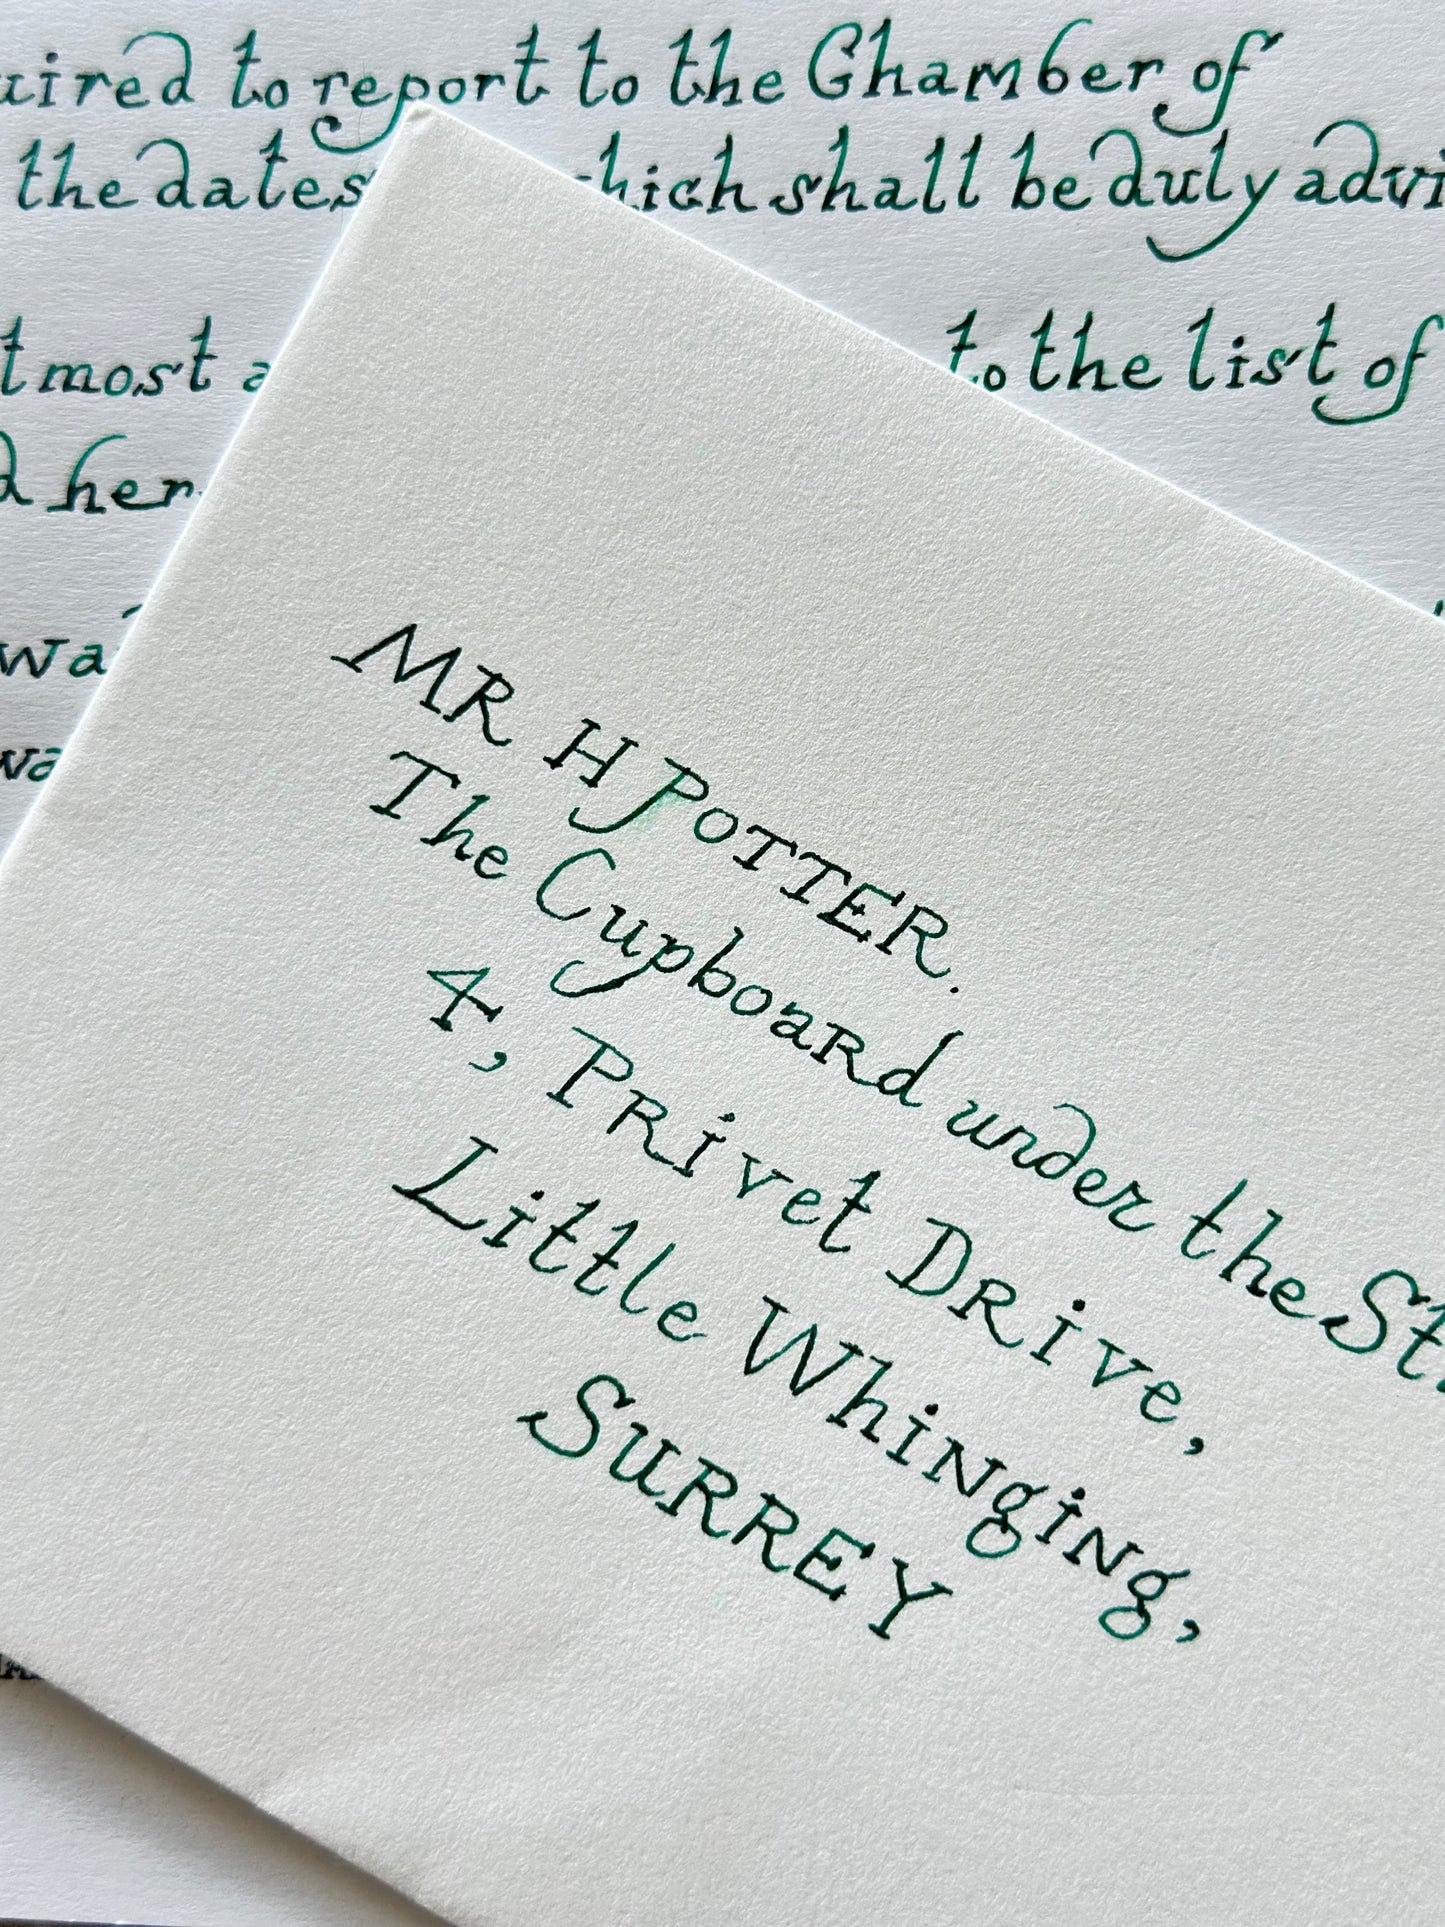 to report to the Chamber of
the dates which shall be duly
most to the list of
MR H POTTER.
The Cupboard under the
4, Privet Drive,
Little Whinging,
SURREY